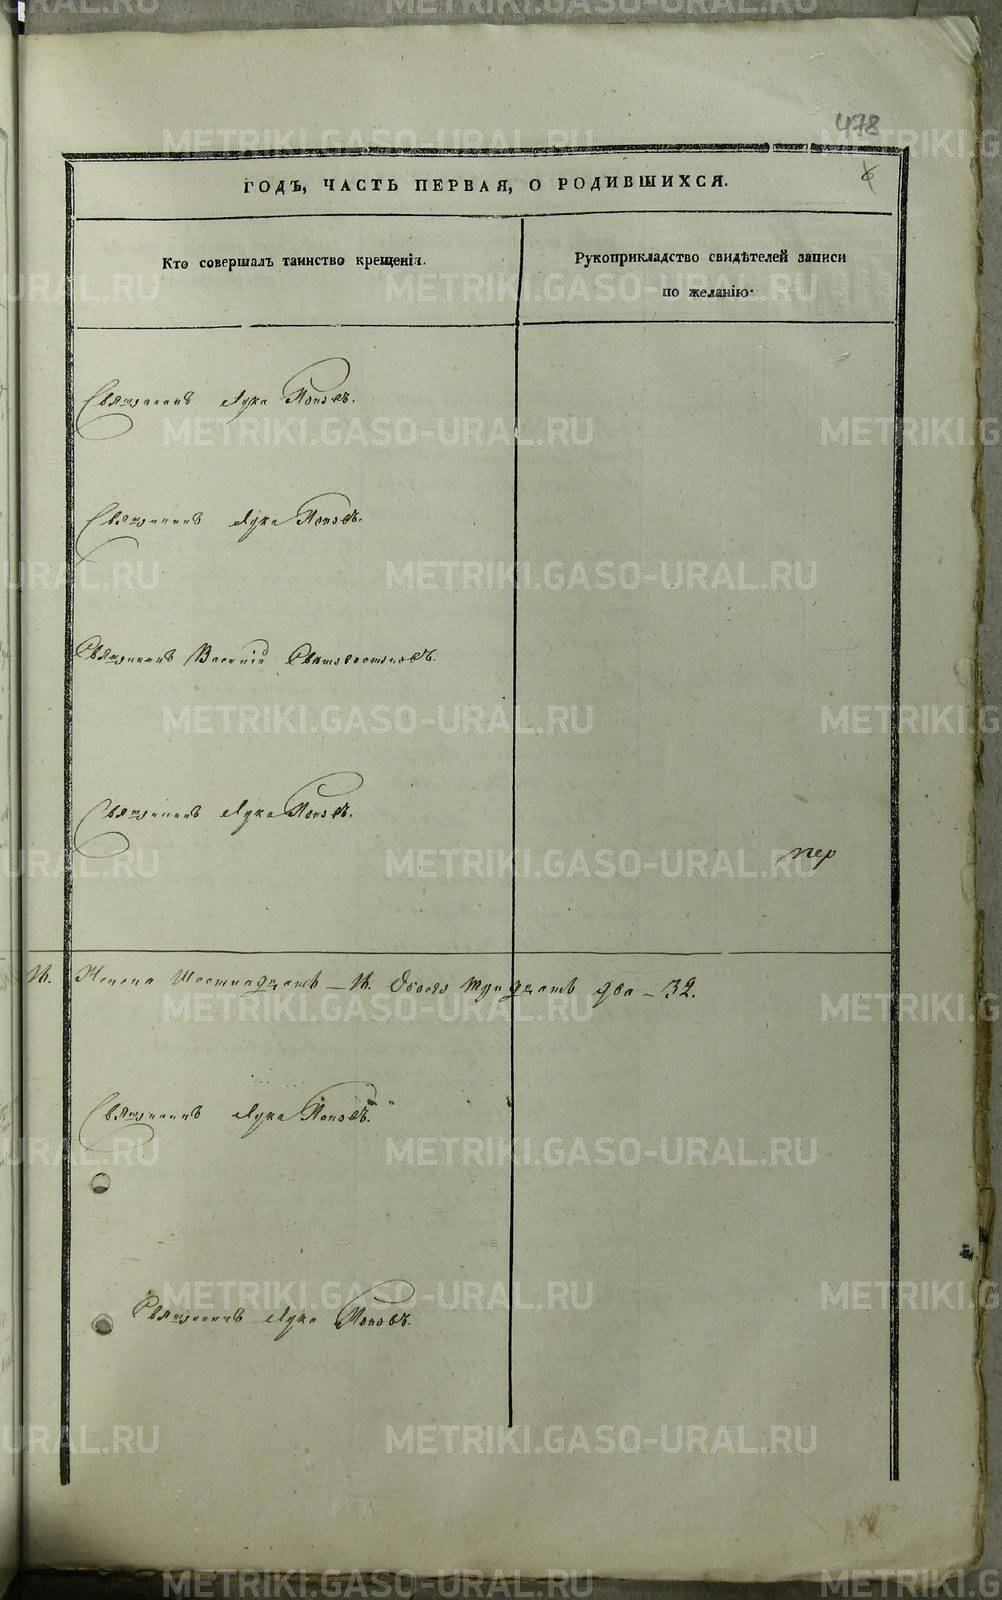 478
6
ГОДЪ, ЧАСТЬ ПЕРВАЯ, О РОДИВШИХСЯ.
Кто совершалъ таинство крещенія.
Рукоприкладство свидѣтелей записи
по желанію.
Священникъ Лука Поповъ.
Священникъ Лука Поповъ.
Священникъ Василій
Священникъ Лука Поповъ.
пер
Женска Шестнадцать — 16. Обоего тридцать два — 32.
Священникъ Лука Поповъ.
Священникъ Лука Поповъ.
METRIKI.GASO-URAL.RU